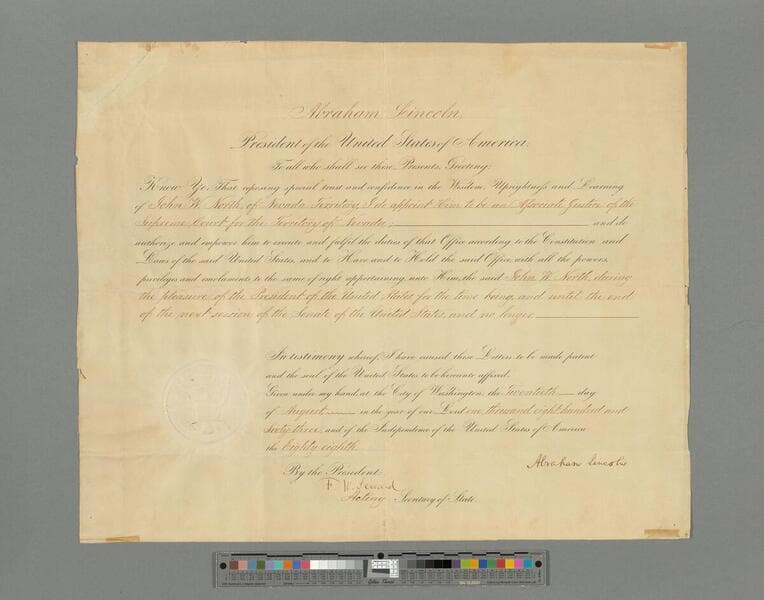 Abraham Lincoln,
President of the United States of America.
To all who shall see these Presents, Greeting:
Know Ye, That reposing special trust and confidence in the Wisdom, Uprightness and Learning
of John W. North, of Nevada Territory, I do appoint Him to be an Associate Justice of the
Supreme Court for the Territory of Nevada; and do
authorize and empower him to execute and fulfil the duties of that Office according to the Constitution and
Laws of the said United States, and to Have and to Hold the said Office, with all the powers,
privileges and emoluments to the same of right appertaining, unto Him, the said John W. North, during
the pleasure of the President of the United States for the time being, and until the end
of the next session of the Senate of the United States, and no longer
In testimony whereof, I have caused these Letters to be made patent
and the seal of the United States to be hereunto affixed.
Given under my hand, at the City of Washington, the Twentieth day
of August, in the year of our Lord one thousand eight hundred and
sixty three, and of the Independence of the United States of America
the Eighty eighth.
Abraham Lincoln
By the President:
F. W. Seward
Acting Secretary of State.